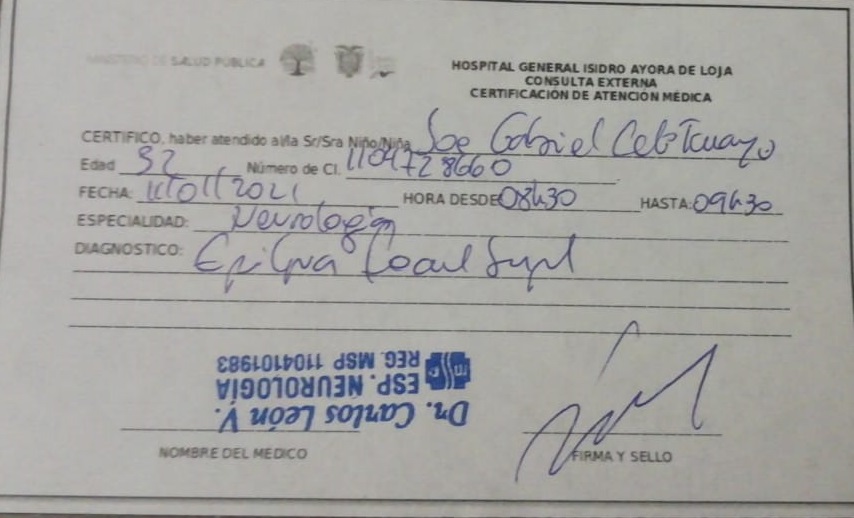 MINISTERIO DE SALUD PÚBLICA
HOSPITAL GENERAL ISIDRO AYORA DE LOJA
CONSULTA EXTERNA
CERTIFICACIÓN DE ATENCIÓN MÉDICA
CERTIFICO, haber atendido al/la Sr/Sra Niño/Niña Gabriel
Edad 32 Número de CI. 1104728660
FECHA: 11/01/2021 HORA DESDE 08h30 HASTA: 09h30
ESPECIALIDAD: Neurología
DIAGNOSTICO:
Dr. Carlos León V.
ESP. NEUROLOGÍA
REG. MSP 1104101983
NOMBRE DEL MEDICO
FIRMA Y SELLO